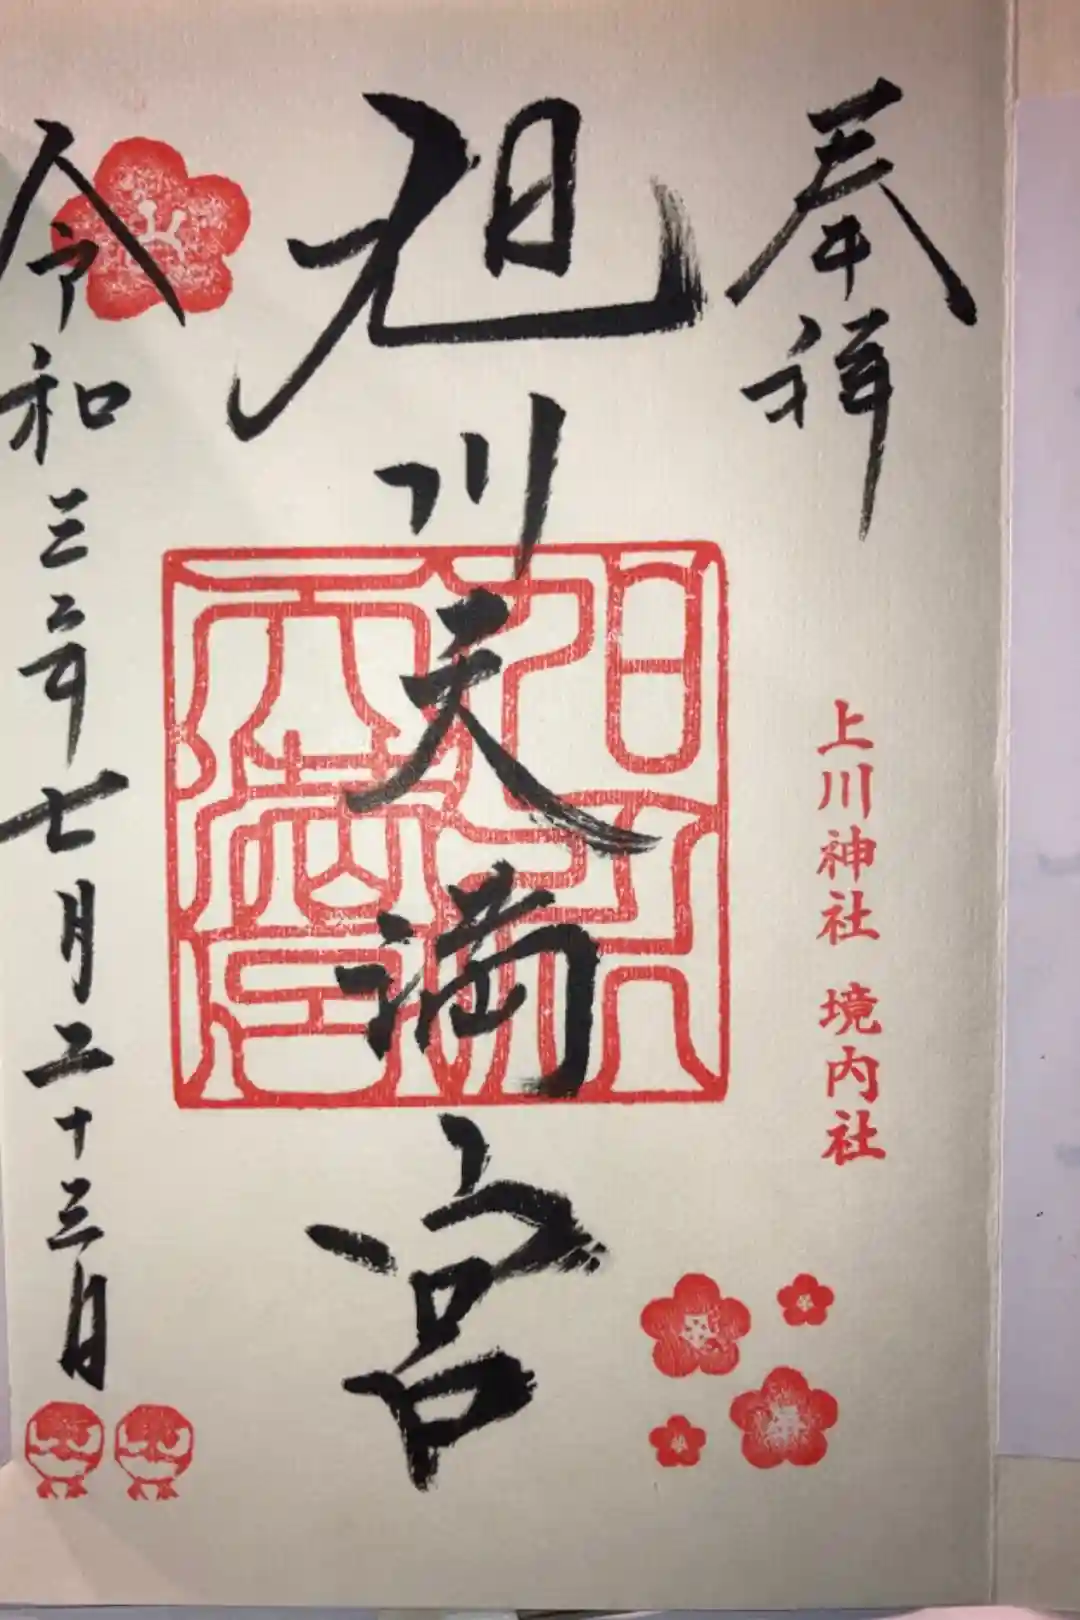 奉拝
上川神社 境内社
旭川天満宮
令和三年七月二十三日